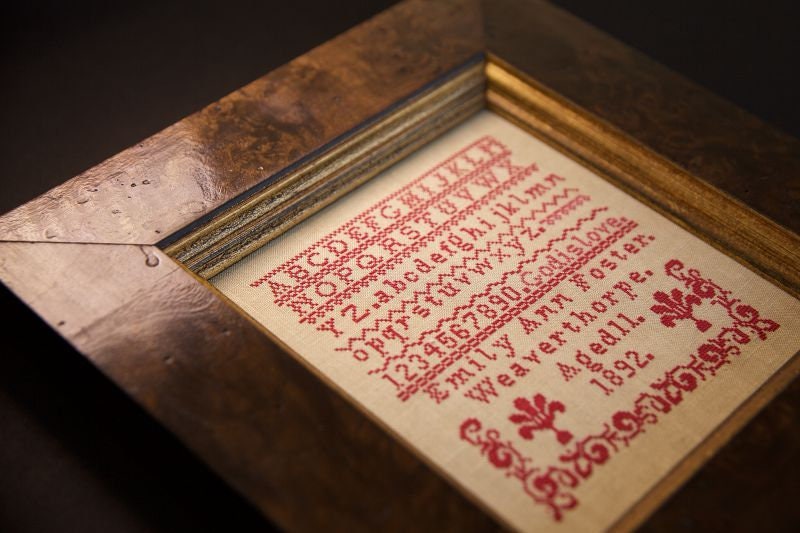 ABCDEFGHIJKLM
NOPQRSTUVWX
YZ.abcdefghijklmn
opqrstuvwxyz.
1234567890.Godislove.
Emily Ann Foster.
Weaverthorpe.
Aged11.
1892.